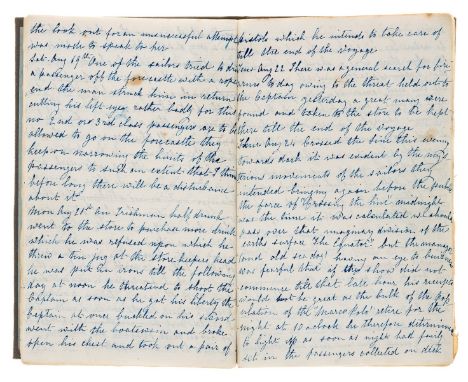 the look out for an unsuccessful attempt
was made to speak to her
Sat. Aug 19th One of the sailors tried to drive
a passenger off the forecastle with a rope
end the man struck him in return
cutting his left eye rather badly for this
no 2nd or 3rd class passengers are to be
allowed to go on the forecastle they
keep on narrowing the limits of the
passengers to such an extent that I think
before long there will be a disturbance
about it
Monday 21st An Irishman half drunk
went to the store to purchase more drink
which he was refused upon which he
threw a tin pig at the store keepers head
he was put in irons till the following
day at noon he threatened to shoot the
Captain as soon as he got his liberty the
Captain at once buckled on his sword
went with the boatswain and broke
open his chest and took out a pair of
pistols which he intends to take care of
till the end of the voyage.
Aug 22 There was a general search for fire
arms to day owing to the threat held out to
the Captain yesterday a great many were
found and taken to the store to be kept
there till the end of the voyage
Aug 24 Crossed the line this evening
towards dark it was evident by the mys
terious movements of the sailors they
intended bringing again before the public
the farce of Crossing the line midnight
was the time it was calculated we should
pass over that imaginary division of the
earths surface The Equator but the manager
(and old sea dog) having an eye to business
was fearful that if the show did not
commence till that late hour his receipts
would not be great as the bulk of the pop
ulation of the Marco Polo retire for the
night at 10 oclock he therefore determined
to light up as soon as night had fairly
set in the passengers collected on deck